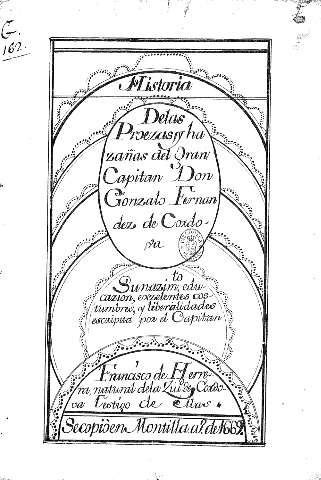 G.
162.
Historia
Delas
Proezas y ha
zañas del Gran
Capitan Don
Gonzalo Fernan
dez de Cordo
va
Su nazim.to edu
cazion, exzelentes cos
tumbres, y liberalidades
escripta por el Capitan
Francisco de Herre
ra natural dela Ziu.d de Cordo
va Testigo de
Se copió en Montilla a.o de 1669.